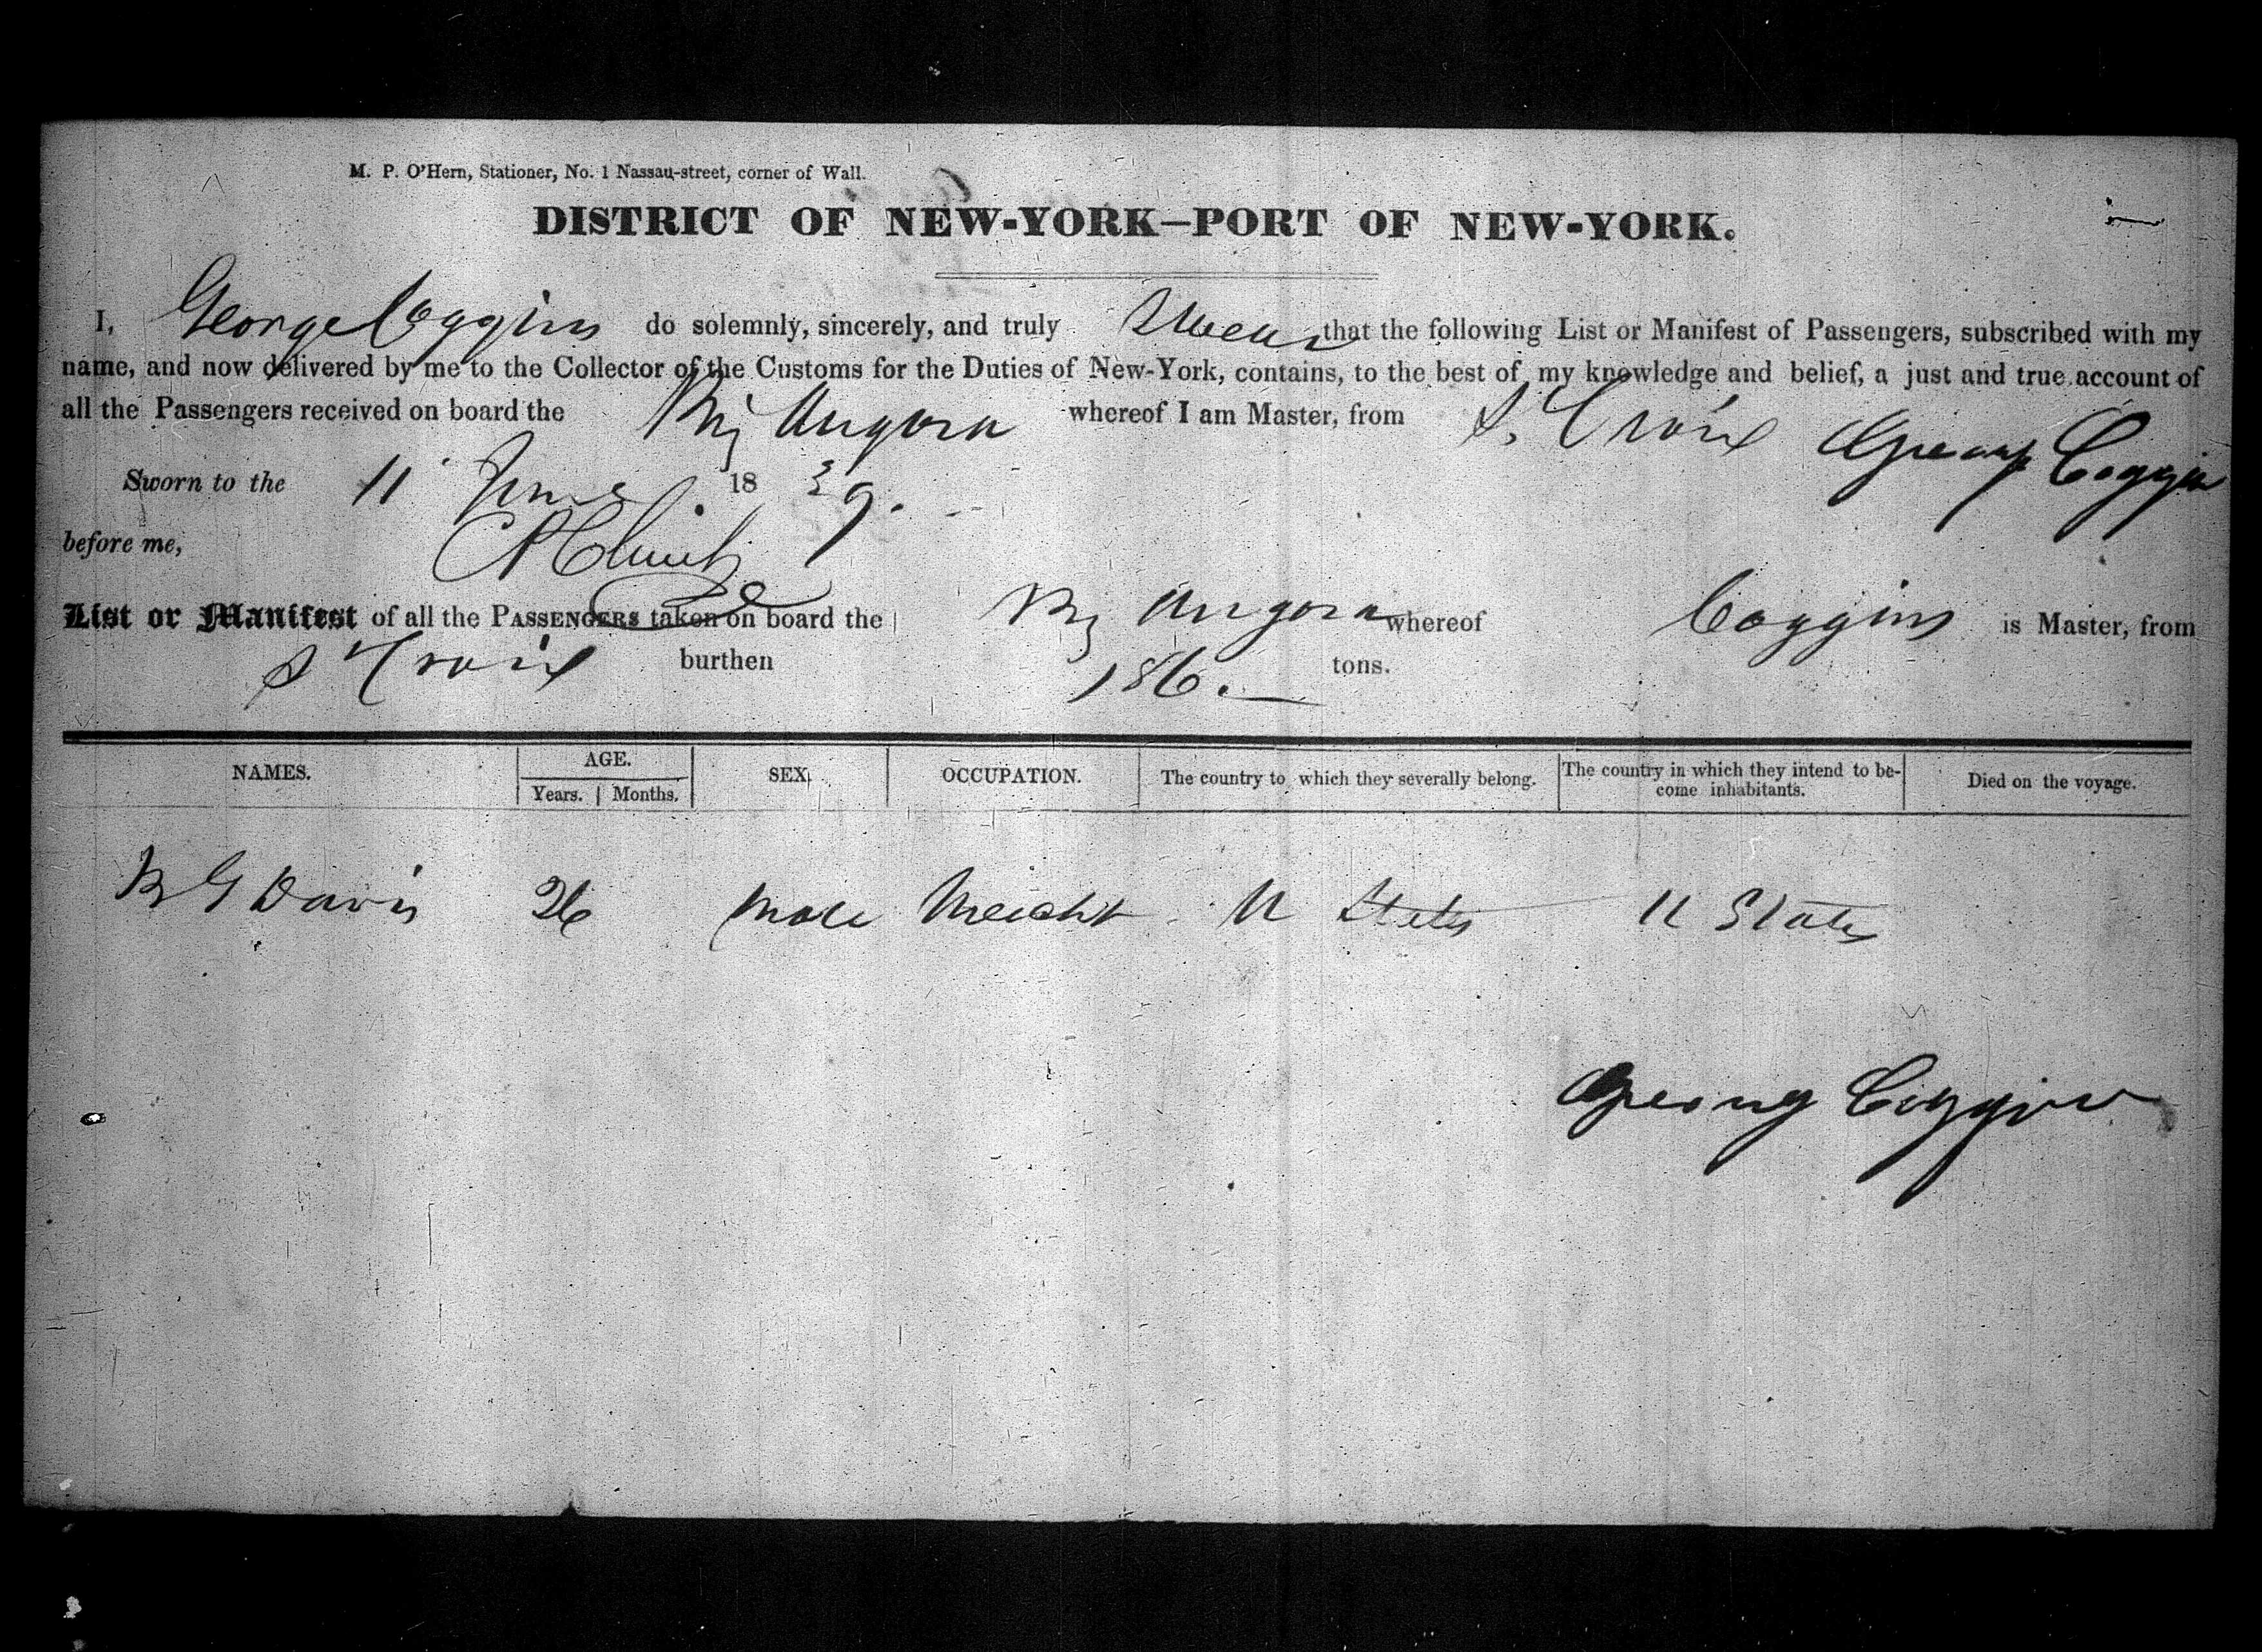 M. P. O'Hern, Stationer, No. 1 Nassau-street, corner of Wall.
DISTRICT OF NEW-YORK—PORT OF NEW-YORK.
I, George Coggins do solemnly, sincerely, and truly Swear that the following List or Manifest of Passengers, subscribed with my
name, and now delivered by me to the Collector of the Customs for the Duties of New-York, contains, to the best of my knowledge and belief, a just and true account of
all the Passengers received on board the Brig Angora whereof I am Master, from St Croix George Coggins
Sworn to the 11 June 1839.
before me,
List or Manifest of all the PASSENGERS taken on board the Brig Angora whereof Coggins is Master, from
St Croix burthen 186. tons.
NAMES. AGE. SEX. OCCUPATION. The country to which they severally belong. The country in which they intend to be- Died on the voyage.
Years. Months. come inhabitants.
B G Davis 26 male Mercht U States U States
George Coggins